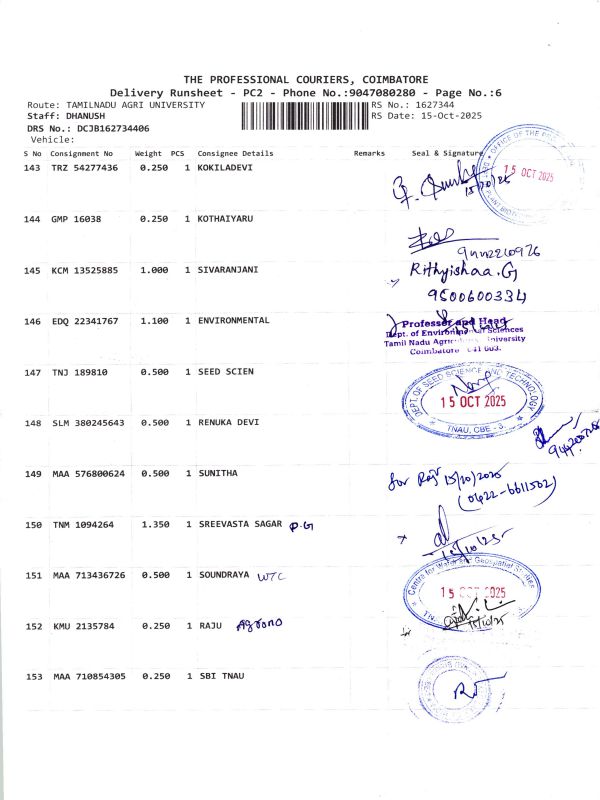 THE PROFESSIONAL COURIERS, COIMBATORE
Delivery Runsheet - PC2 - Phone No.:9047080280 - Page No.:6
Route: TAMILNADU AGRI UNIVERSITY RS No.: 1627344
Staff: DHANUSH RS Date: 15-Oct-2025
DRS No.: DCJB162734406
Vehicle:
S No Consignment No Weight PCS Consignee Details Remarks Seal & Signature
OFFICE OF THE
15 OCT 2025
143 TRZ 54277436 0.250 1 KOKILADEVI
144 GMP 16038 0.250 1 KOTHAIYARU
145 KCM 13525885 1.000 1 SIVARANJANI Rithyishaa.G
9500600334
146 EDQ 22341767 1.100 1 ENVIRONMENTAL Professor and Head
Dept. of Environmental Sciences
Tamil Nadu Agricultural University
Coimbatore - 641 003.
147 TNJ 189810 0.500 1 SEED SCIEN
DEPT. OF SEED SCIENCE AND TECHNOLOGY
15 OCT 2025
TNAU, CBE - 3.
148 SLM 380245643 0.500 1 RENUKA DEVI
149 MAA 576800624 0.500 1 SUNITHA for Raji 15/10/2025
(0422-6611502)
150 TNM 1094264 1.350 1 SREEVASTA SAGAR P.G
151 MAA 713436726 0.500 1 SOUNDRAYA WTC
Centre for Water and Geospatial Studies
15 OCT 2025
152 KMU 2135784 0.250 1 RAJU Agrono
153 MAA 710854305 0.250 1 SBI TNAU